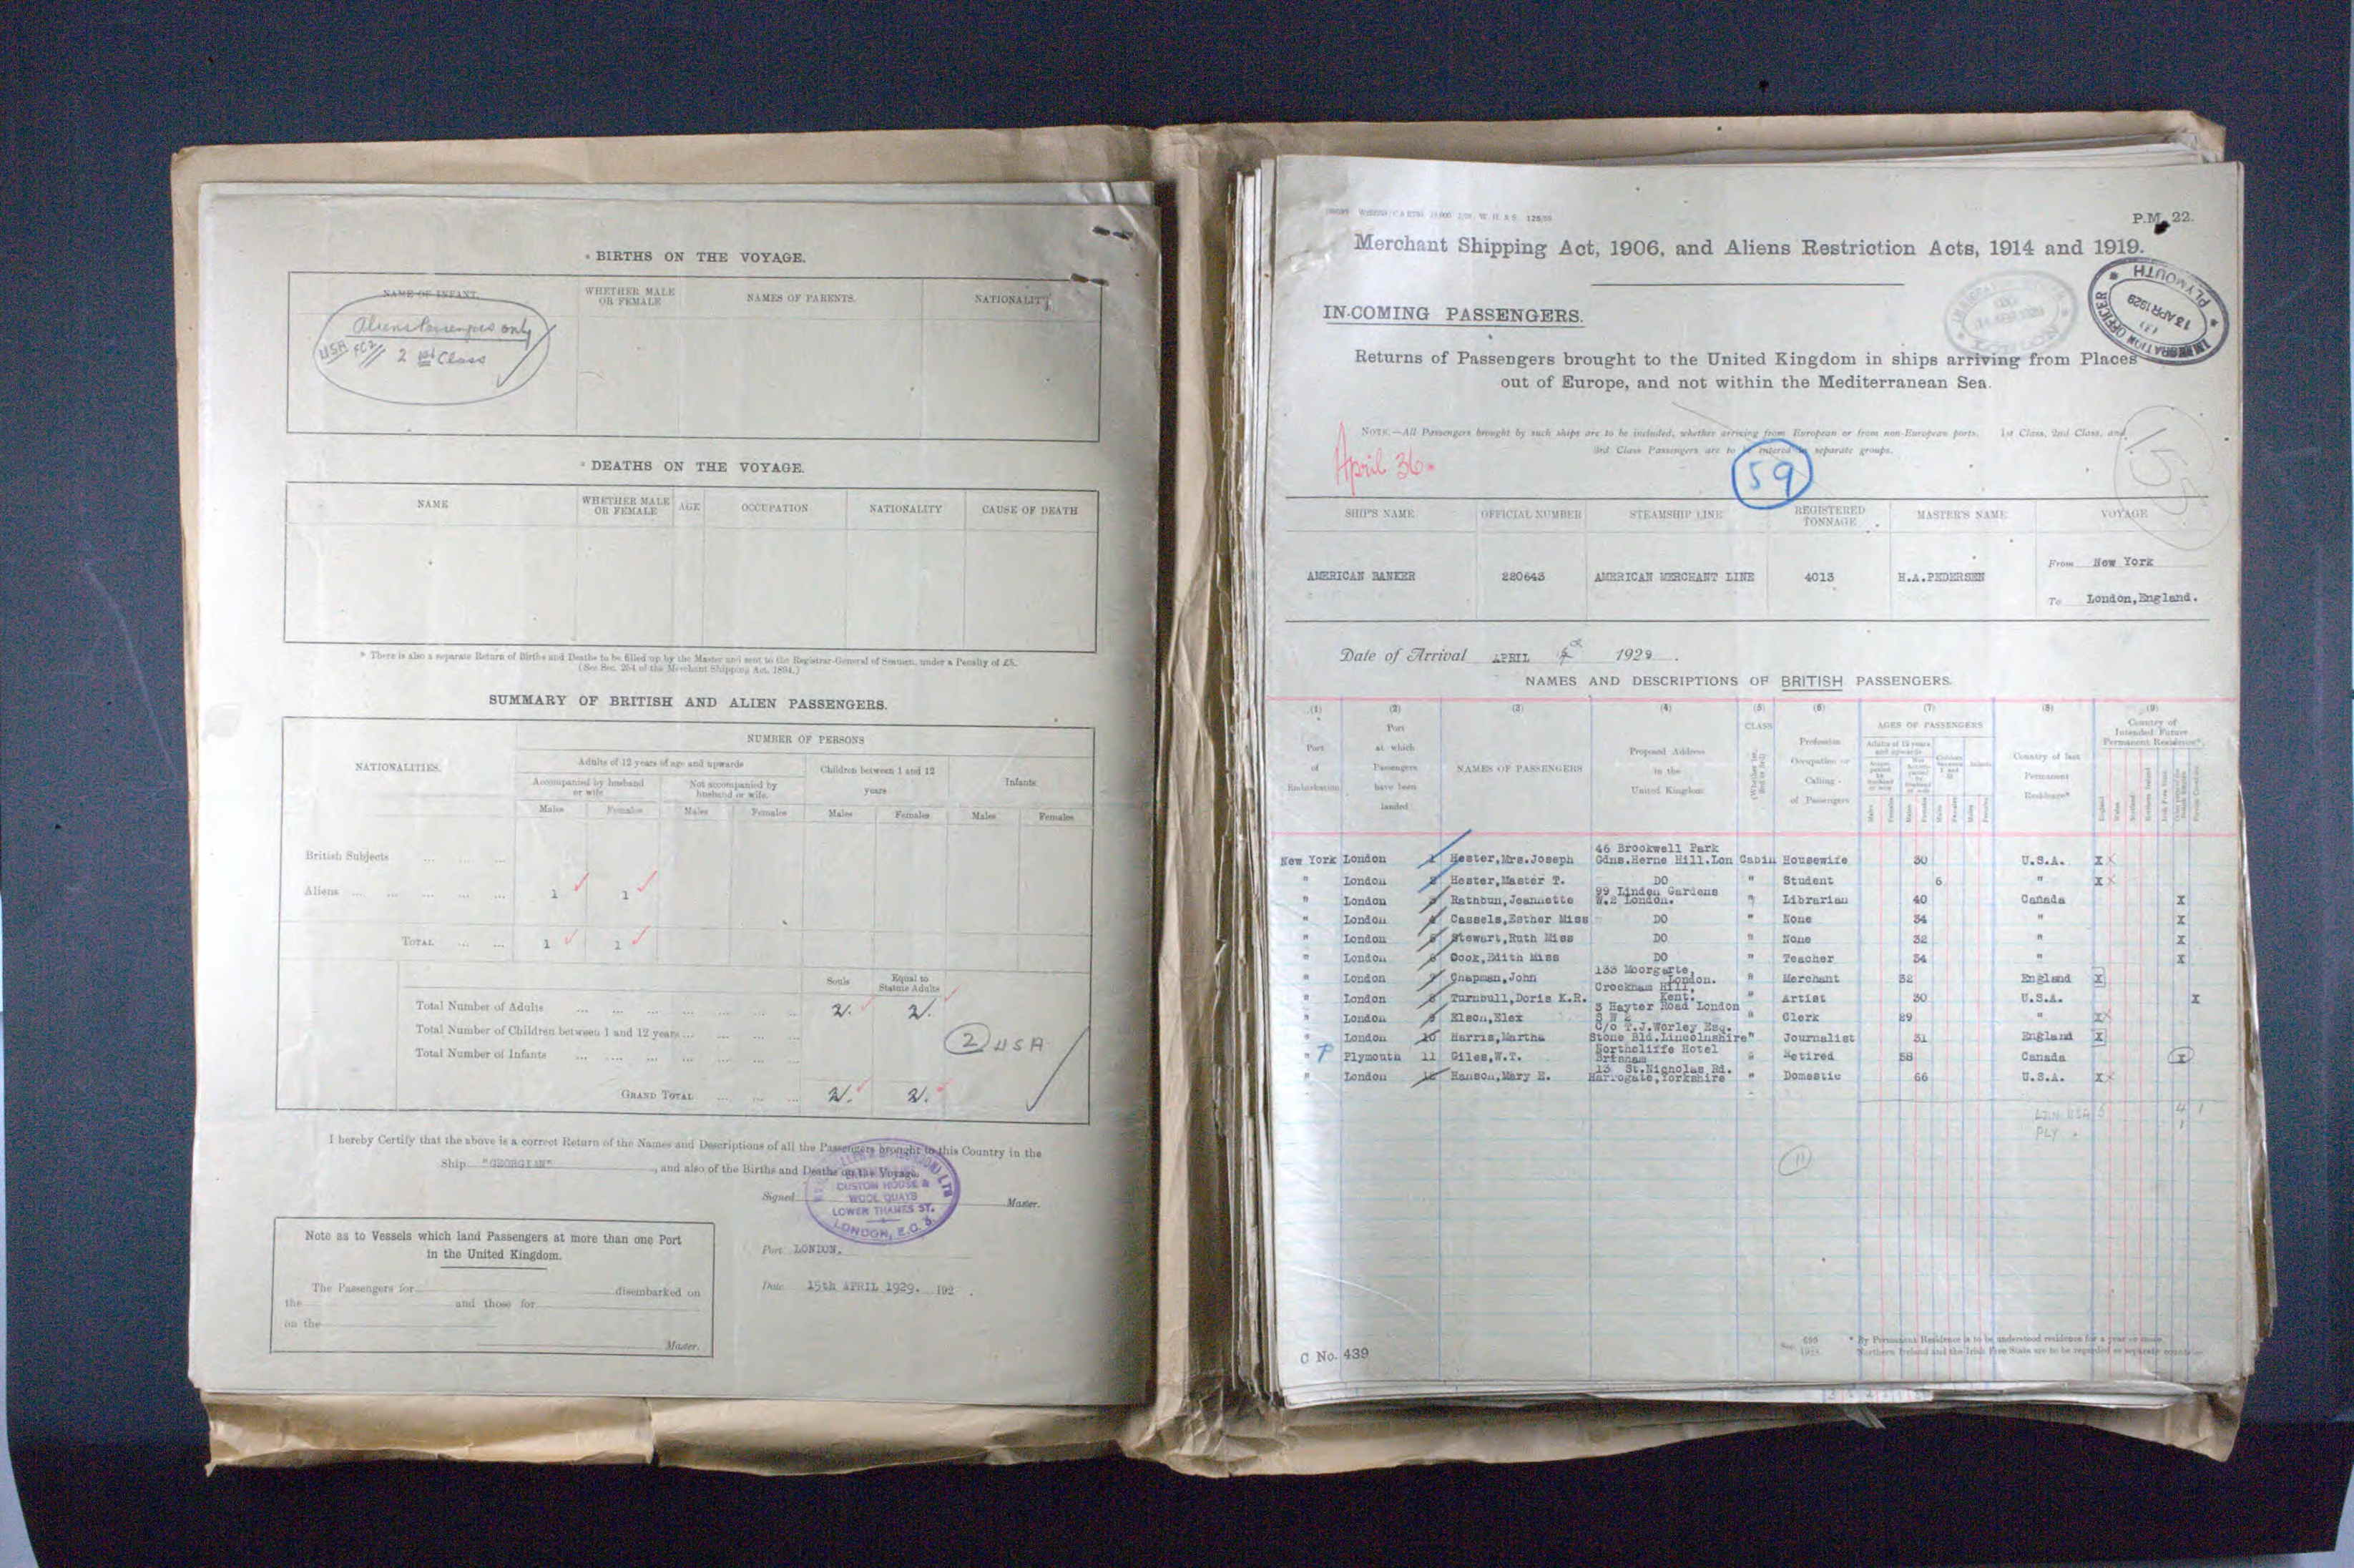 * BIRTHS ON THE VOYAGE.
NAME OF INFANT.
WHETHER MALE OR FEMALE
NAMES OF PARENTS.
NATIONALITY
Aliens Passengers only
USA
2 1st Class
* DEATHS ON THE VOYAGE.
NAME
WHETHER MALE OR FEMALE
AGE
OCCUPATION
NATIONALITY
CAUSE OF DEATH
* There is also a separate Return of Births and Deaths to be filled up by the Master and sent to the Registrar-General of Seamen, under a Penalty of £5.
(See Sec. 254 of the Merchant Shipping Act, 1894.)
SUMMARY OF BRITISH AND ALIEN PASSENGERS.
NATIONALITIES.
NUMBER OF PERSONS
Adults of 12 years of age and upwards
Children between 1 and 12 years
Infants
Accompanied by husband or wife
Not accompanied by husband or wife
Males Females Males Females Males Females Males Females
British Subjects ... ... ...
Aliens ... ... ... ... ... 1 1
TOTAL ... ... 1 1
Souls
Equal to Statute Adults
Total Number of Adults ... ... ... ... ... ... ... 2. 2.
Total Number of Children between 1 and 12 years ... ... ... ...
Total Number of Infants ... .... ... ... ... ... ...
2 USA
GRAND TOTAL ... ... ... 2. 2.
I hereby Certify that the above is a correct Return of the Names and Descriptions of all the Passengers brought to this Country in the
Ship "GEORGIAN" , and also of the Births and Deaths on the Voyage.
CUSTOM HOUSE &
WOOL QUAYS
LOWER THAMES ST.
LONDON, E.C.3
Signed
Master.
Port LONDON.
Date 15th APRIL 1929. 192 .
Note as to Vessels which land Passengers at more than one Port
in the United Kingdom.
The Passengers for disembarked on
the and those for
on the
Master.
P.M. 22.
Merchant Shipping Act, 1906, and Aliens Restriction Acts, 1914 and 1919.
IMMIGRATION OFFICER
13 APR 1929
PLYMOUTH
IN-COMING PASSENGERS.
Returns of Passengers brought to the United Kingdom in ships arriving from Places
out of Europe, and not within the Mediterranean Sea.
NOTE.—All Passengers brought by such ships are to be included, whether arriving from European or from non-European ports. 1st Class, 2nd Class, and
3rd Class Passengers are to be entered in separate groups.
April 36
59
155
SHIP'S NAME
OFFICIAL NUMBER
STEAMSHIP LINE
REGISTERED TONNAGE
MASTER'S NAME
VOYAGE
AMERICAN BANKER
220643
AMERICAN MERCHANT LINE
4013
H.A.PEDERSEN
From New York
To London,England.
Date of Arrival APRIL 1929.
NAMES AND DESCRIPTIONS OF BRITISH PASSENGERS.
(1) (2) (3) (4) (5) (6) (7) (8) (9)
Port of Embarkation
Port at which Passengers have been landed
NAMES OF PASSENGERS
Proposed Address in the United Kingdom
CLASS
Profession Occupation or Calling of Passengers
AGES OF PASSENGERS
Country of last Permanent Residence*
Country of Intended Future Permanent Residence*
New York London 1 Hester,Mrs.Joseph 46 Brookwell Park Gdns.Herne Hill.Lon Cabin Housewife 30 U.S.A. X
" London 2 Hester,Master T. DO " Student 6 " X
" London 3 Rathbun,Jeannette 99 Linden Gardens W.2 London. " Librarian 40 Canada X
" London 4 Cassels,Esther Miss DO " None 34 " X
" London 5 Stewart,Ruth Miss DO " None 32 " X
" London 6 Cook,Edith Miss DO " Teacher 34 " X
" London 7 Chapman,John 133 Moorgarte, London. " Merchant 32 England X
" London 8 Turnbull,Doris K.R. Crockham Hill, Kent. " Artist 30 U.S.A. X
" London 9 Elson,Elex 3 Hayter Road London S W 2 " Clerk 29 " X
" London 10 Harris,Martha C/o T.J.Worley Esq. Stone Bld.Lincolnshire " Journalist 31 England X
" P Plymouth 11 Giles,W.T. Northcliffe Hotel Brixham " Retired 58 Canada X
" London 12 Hanson,Mary E. 13 St.Nicholas Rd. Harrogate,Yorkshire " Domestic 66 U.S.A. X
LDN USA 5 4 1
PLY. 1
11
C No. 439
* By Permanent Residence is to be understood residence for a year or more.
Northern Ireland and the Irish Free State are to be regarded as separate countries.